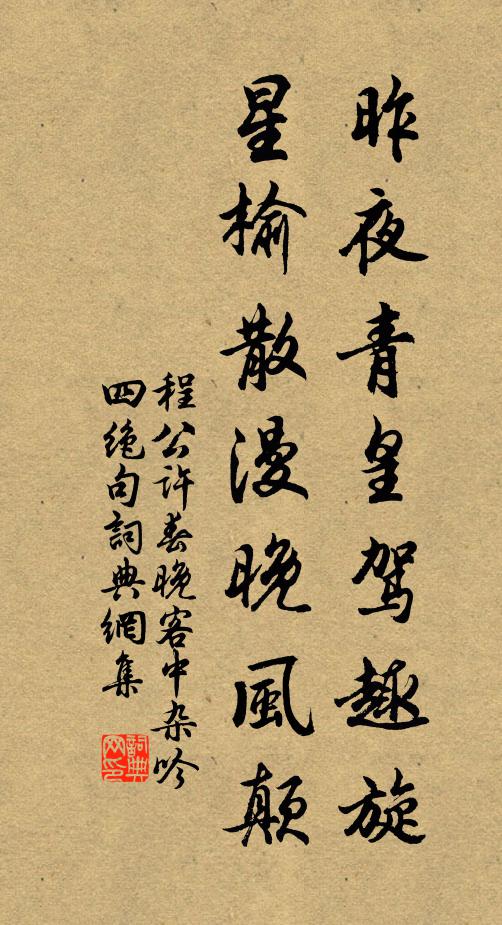 昨夜青皇駕趣旋
星榆散漫晚風顛
程公許春晚客中杂吟
四绝句詞典網集
詞典网印